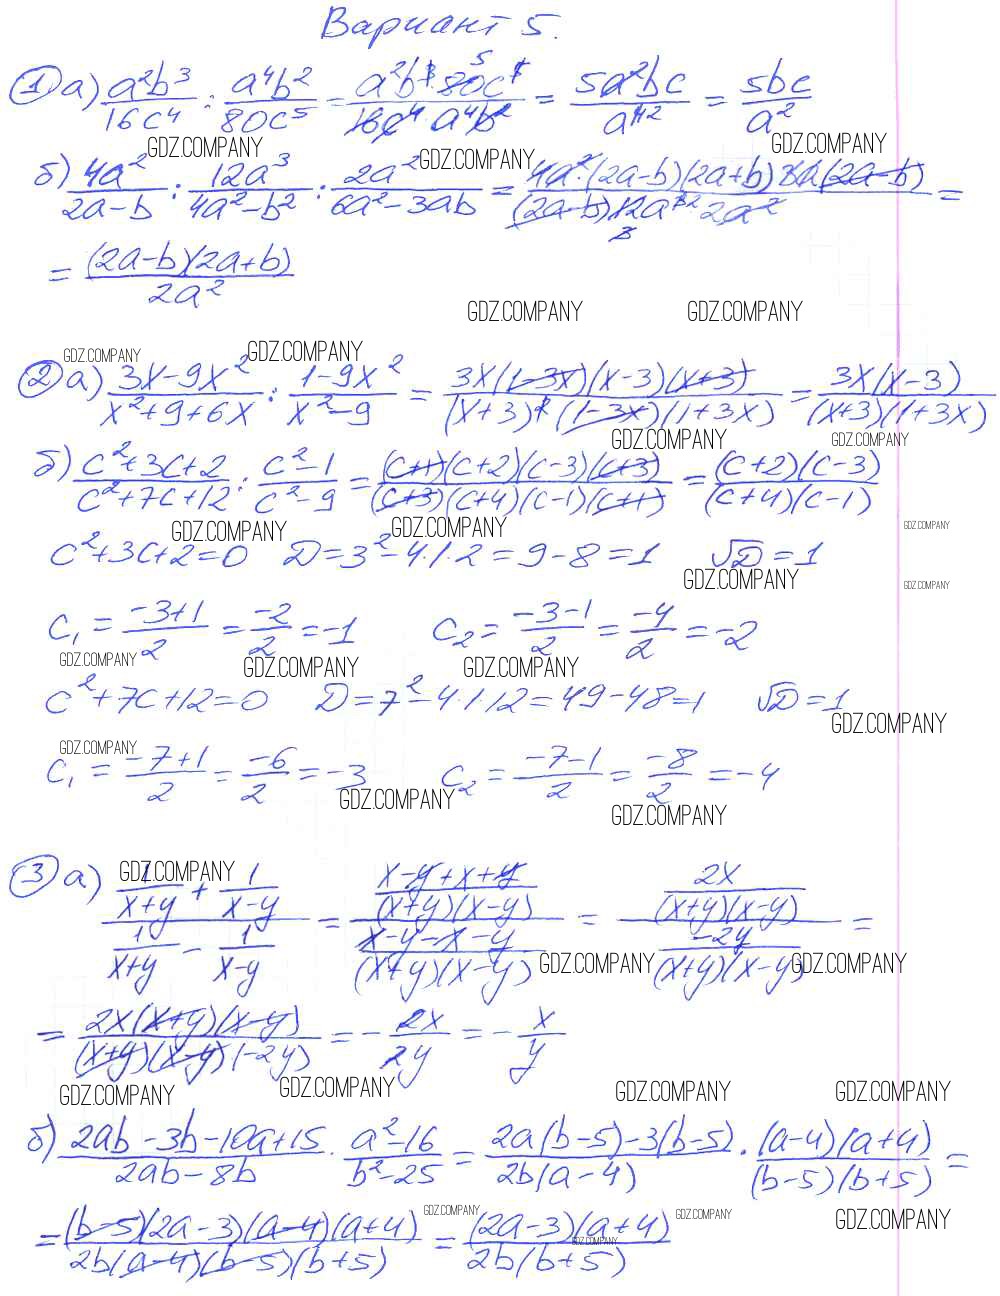 Вариант 5.
① а) a²b³/16c⁴ : a⁴b²/80c⁵ = a²b³·80c⁵/16c⁴·a⁴b² = 5a²bc/a⁴ = 5bc/a²
GDZ.COMPANY GDZ.COMPANY GDZ.COMPANY
б) 4a²/2a-b : 12a³/4a²-b² : 2a²/6a²-3ab = 4a²·(2a-b)(2a+b)3a(2a-b)/(2a-b)12a³·2a² =
= (2a-b)(2a+b)/2a²
GDZ.COMPANY GDZ.COMPANY
GDZ.COMPANY GDZ.COMPANY
② а) 3x-9x²/x²+9+6x : 1-9x²/x²-9 = 3x(1-3x)(x-3)(x+3)/(x+3)²(1-3x)(1+3x) = 3x(x-3)/(x+3)(1+3x)
GDZ.COMPANY GDZ.COMPANY
б) c²+3c+2/c²+7c+12 : c²-1/c²-9 = (c+1)(c+2)(c-3)(c+3)/(c+3)(c+4)(c-1)(c+1) = (c+2)(c-3)/(c+4)(c-1)
GDZ.COMPANY GDZ.COMPANY GDZ.COMPANY
c²+3c+2=0 D=3²-4·1·2=9-8=1 √D=1
GDZ.COMPANY GDZ.COMPANY
c₁ = -3+1/2 = -2/2 = -1 c₂ = -3-1/2 = -4/2 = -2
GDZ.COMPANY GDZ.COMPANY GDZ.COMPANY
c²+7c+12=0 D=7²-4·1·12=49-48=1 √D=1
GDZ.COMPANY
GDZ.COMPANY
c₁ = -7+1/2 = -6/2 = -3 c₂ = -7-1/2 = -8/2 = -4
GDZ.COMPANY GDZ.COMPANY
GDZ.COMPANY
③ а) (1/x+y + 1/x-y)/(1/x+y - 1/x-y) = (x-y+x+y/(x+y)(x-y))/(x-y-x-y/(x+y)(x-y)) = (2x/(x+y)(x-y))/(-2y/(x+y)(x-y)) =
GDZ.COMPANY GDZ.COMPANY
= 2x(x+y)(x-y)/(x+y)(x-y)(-2y) = - 2x/2y = - x/y
GDZ.COMPANY GDZ.COMPANY GDZ.COMPANY GDZ.COMPANY
б) 2ab-3b-10a+15/2ab-8b · a²-16/b²-25 = 2a(b-5)-3(b-5)/2b(a-4) · (a-4)(a+4)/(b-5)(b+5) =
GDZ.COMPANY GDZ.COMPANY GDZ.COMPANY
= (b-5)(2a-3)(a-4)(a+4)/2b(a-4)(b-5)(b+5) = (2a-3)(a+4)/2b(b+5)
GDZ.COMPANY